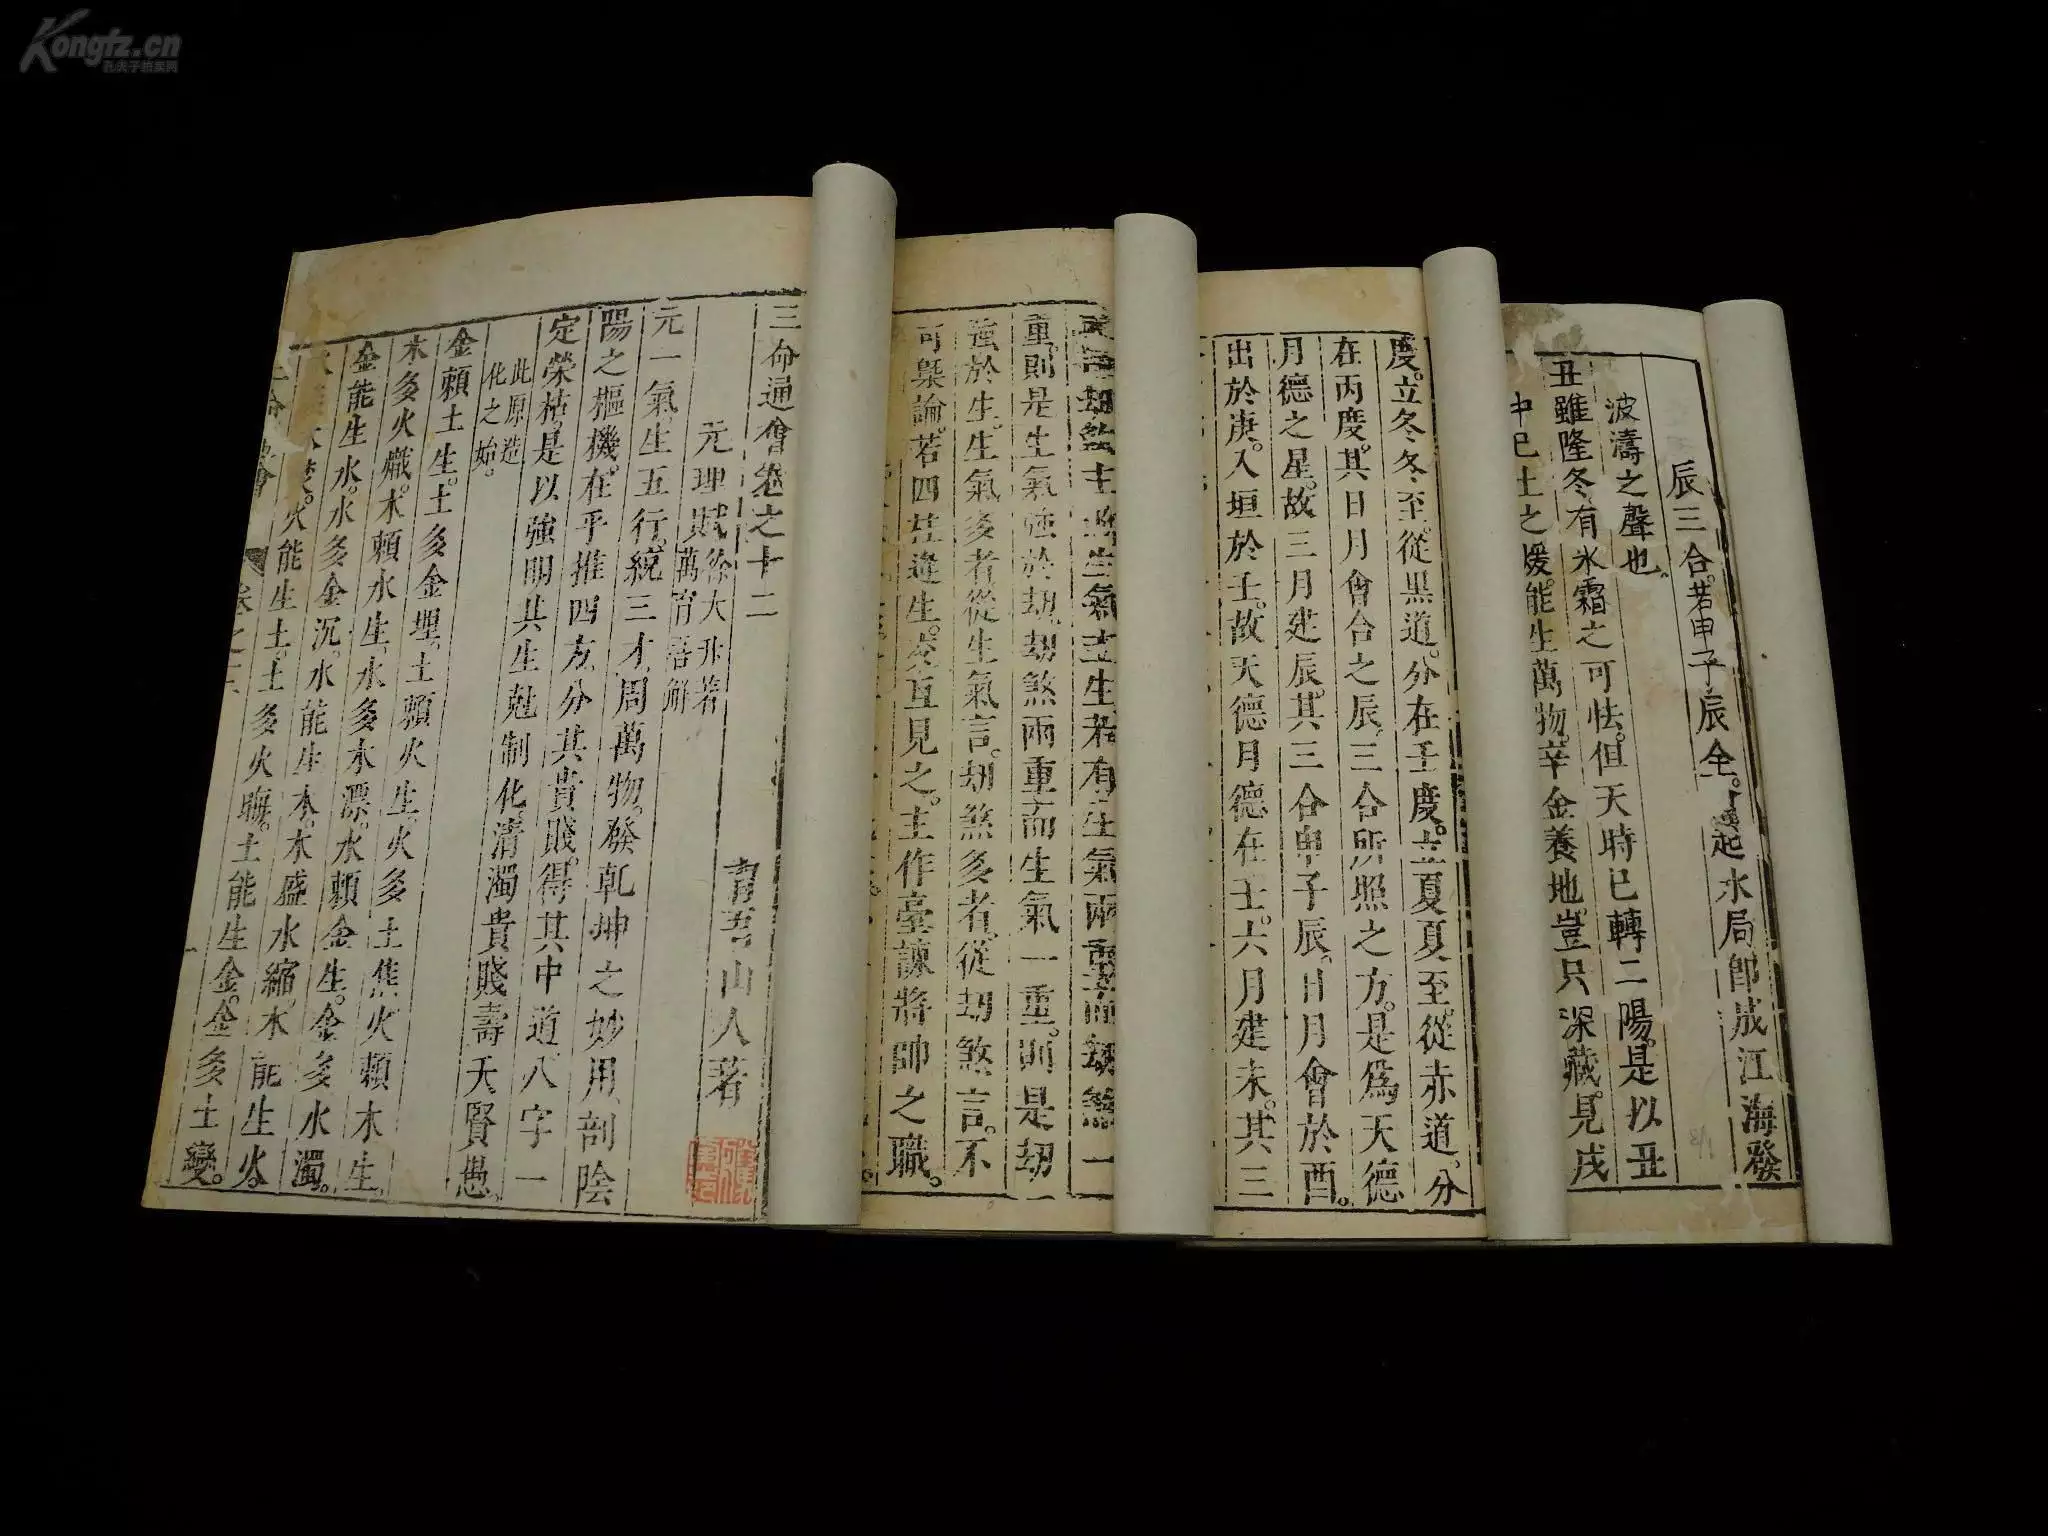 Kongfz.cn
孔夫子拍卖网
三命通會卷之十二
育吾山人著
元理賦
徐大升著
萬育吾解
元一氣。生五行。統三才。周萬物。發乾坤之妙用。剖陰
陽之樞機。在乎推四方。分其貴賤。得其中道。八字一
定榮枯。是以強明其生尅制化。清濁貴賤壽夭賢愚。
此原造
化之始。
金賴土生。土多金埋。土賴火生。火多土焦。火賴木生。
木多火熾。木賴水生。水多木漂。水賴金生。金多水濁。
金能生水。水多金沉。水能生木。木盛水縮。木能生火。
火能生土。土多火晦。土能生金。金多土變。
生氣主生。若有生氣兩重而劫煞一
重。則是生氣強於劫。劫煞兩重而生氣一重。則是劫
強於生。生氣多者從生氣言。劫煞多者從劫煞言。不
可槩論。若四柱逢生。
互見之。主作臺諫將帥之職。
度。立冬冬至。從黑道。分在壬度。立夏夏至。從赤道。分
在丙度。其日月會合之辰。三合所照之方。是為天德
月德之星。故三月建辰。其三合申子辰。日月會於酉。
出於庚。入垣於壬。故天德月德在壬。六月建未。其三
辰三合。若申子辰全。
起水局。即成江海。發
波濤之聲也。
丑雖隆冬。有水霜之可怯。但天時已轉二陽。是以丑
中己土之煖。能生萬物。辛金養地。豈只深藏。見戌